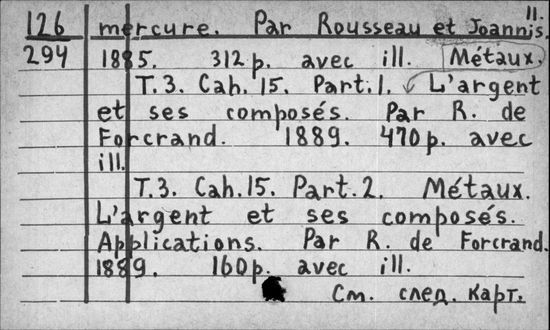 11.
126 mercure. Par Rousseau et Joannis.
294 1885. 312p. avec ill. Métaux.
T.3. Cah.15. Part.1. L'argent
et ses composés. Par R. de
Forcrand. 1889. 470p. avec
ill.
T.3. Cah.15. Part.2. Métaux.
L'argent et ses composés.
Applications. Par R. de Forcrand.
1889. 160p. avec ill.
См. след. карт.